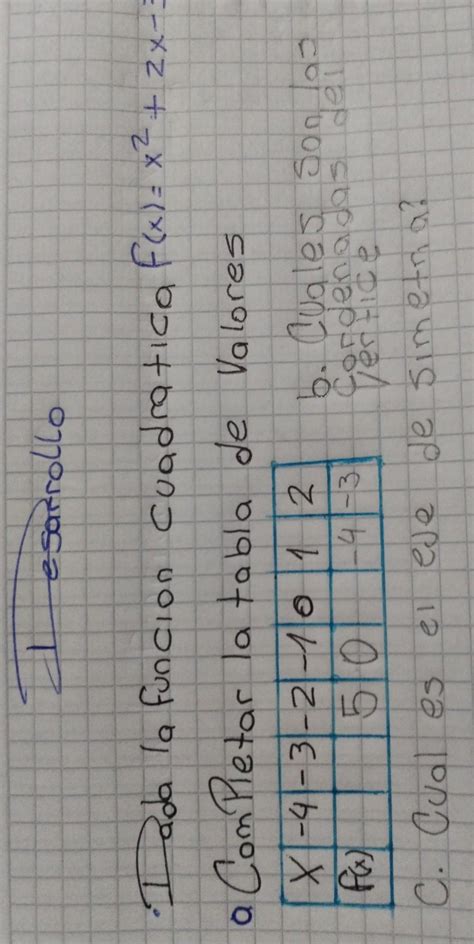 Desarrollo
· Dada la funcion cuadratica f(x)= x² + 2x-
a Completar la tabla de Valores
X -4 -3 -2 -1 0 1 2
f(x) 5 0 -4 -3
b. Cuales son las
cordenadas del
vertice
C. Cual es el eje de simetria?